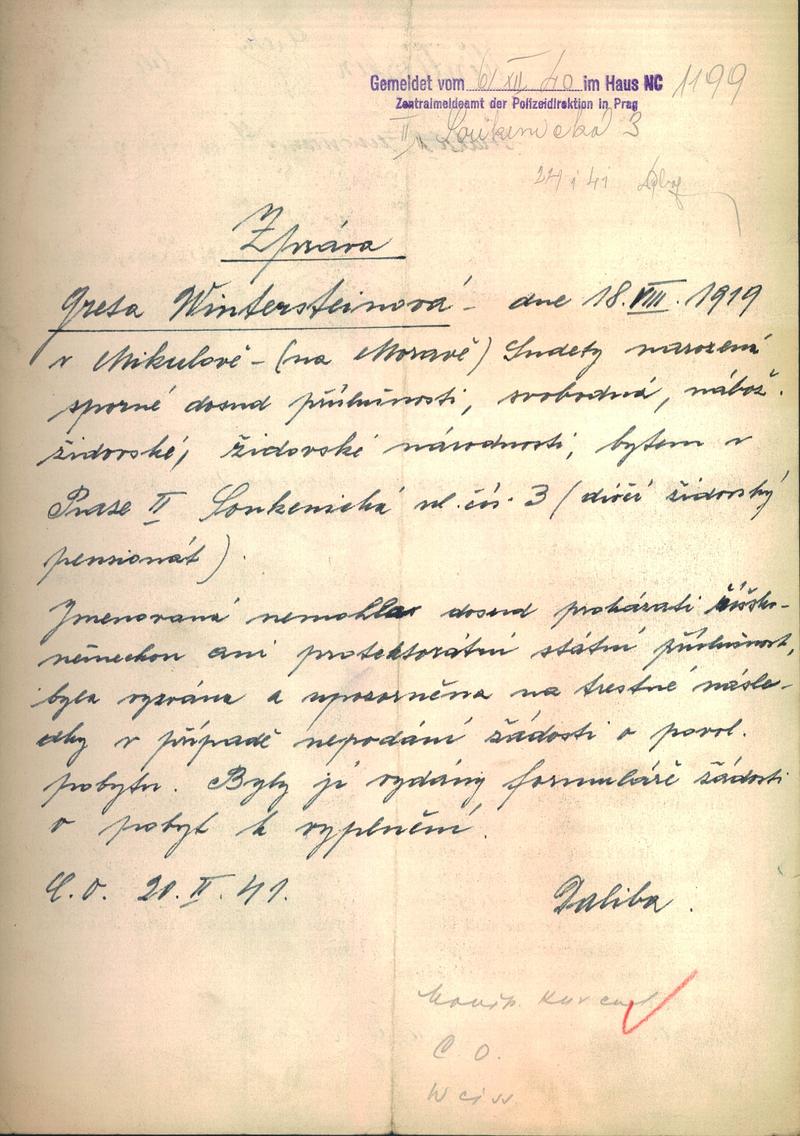 Gemeldet vom 6/XII 40 im Haus NC 1199
Zentralmeldeamt der Polizeidirektion in Prag
II., Soukenická 3
24 I 41
Zpráva
Greta Wintersteinová - dne 18.VIII.1919
v Mikulově - (na Moravě) Sudety narozená
sporné dosud příslušnosti, svobodná, nábož.
židovské, židovské národnosti, bytem v
Praze II Soukenická ul. čís. 3 (dívčí židovský
pensionát).
Jmenovaná nemohla dosud prokázati říšsko-
německou ani protektorátní státní příslušnost,
byla vyzvána a upozorněna na trestné násle-
dky v případě nepodání žádosti o povol.
pobytu. Byly jí vydány formuláře žádosti
o pobyt k vyplnění.
C.O. 20.II.41. Daliba.
C O.
Weiss